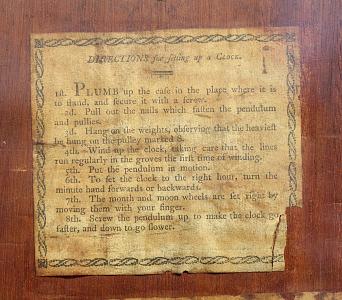 DIRECTIONS for setting up a CLOCK.
1st. PLUMB up the case in the place where it is
to stand, and secure it with a screw.
2d. Pull out the nails which fasten the pendulum
and pullies.
3d. Hang on the weights, observing that the heaviest
be hung on the pulley marked S.
4th. Wind up the clock, taking care that the lines
run regularly in the groves the first time of winding.
5th. Put the pendulum in motion.
6th. To set the clock to the right hour, turn the
minute hand forwards or backwards.
7th. The month and moon wheels are set right by
moving them with your finger.
8th. Screw the pendulum up to make the clock go
faster, and down to go slower.